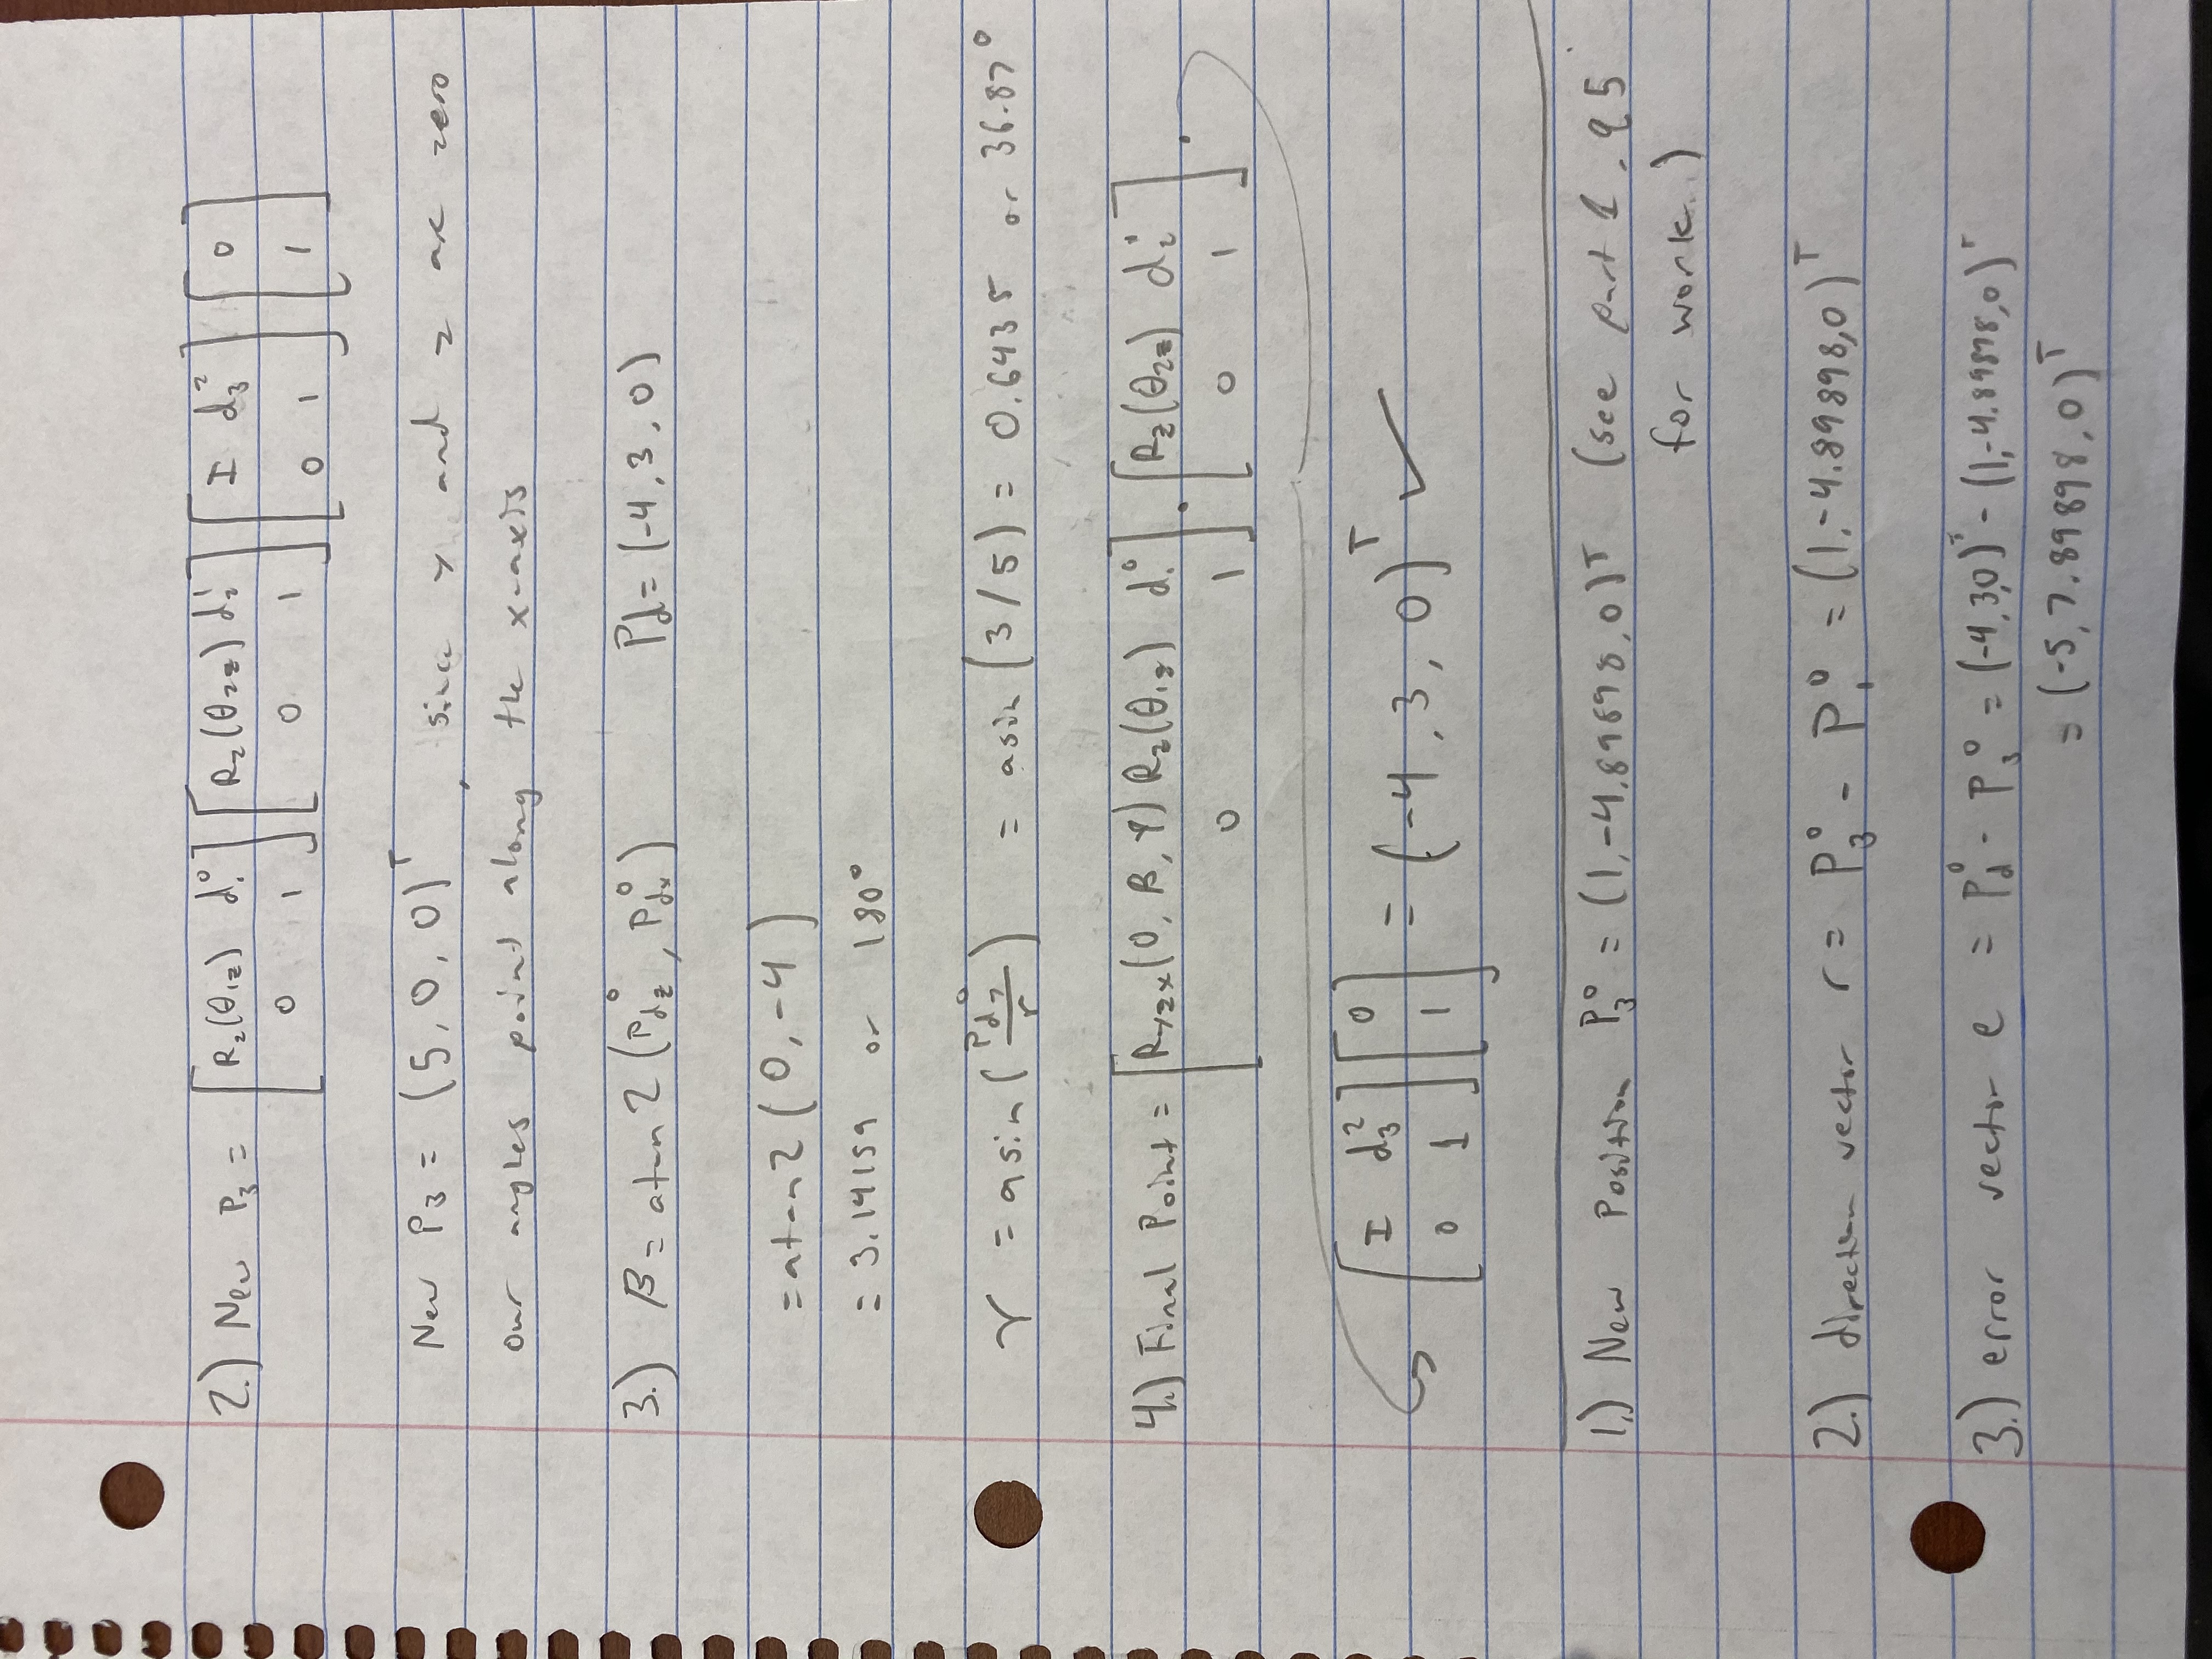 2.) New P₃ = [R_z(θ_1z) d₁⁰; 0 1] [R_z(θ_2z) d₂¹; 0 1] [I d₃²; 0 1] [0; 1]
New P₃ = (5, 0, 0)ᵀ, since y and z are zero
our angles point along the x-axis
3.) β = atan2(P_dz⁰, P_dx⁰) Pd = (-4, 3, 0)
= atan2(0, -4)
= 3.14159 or 180°
γ = asin(P_dy⁰/r) = asin(3/5) = 0.6435 or 36.87°
4.) Final Point = [R_yzx(0, β, γ) R_z(θ_1z) d₁⁰; 0 1] · [R_z(θ_2z) d₂¹; 0 1] ·
[I d₃²; 0 1] [0; 1] = (-4, 3, 0)ᵀ ✓
1.) New Position P₃⁰ = (1, -4.89898, 0)ᵀ (see part 1, q5
for work.)
2.) direction vector r = P₃⁰ - P₁⁰ = (1, -4.89898, 0)ᵀ
3.) error vector e = P_d⁰ - P₃⁰ = (-4, 3, 0)ᵀ - (1, -4.89898, 0)ᵀ
= (-5, 7.89898, 0)ᵀ